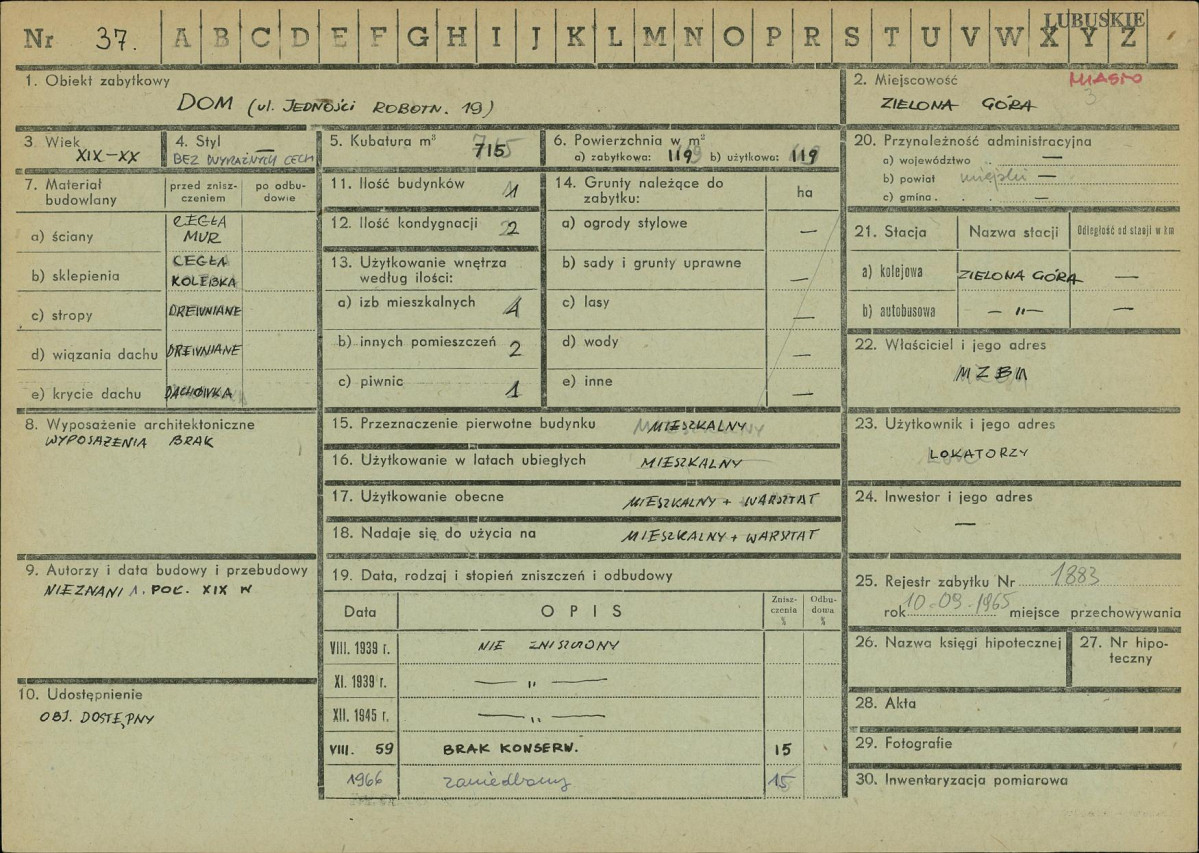 LUBUSKIE
Nr 37. A B C D E F G H I J K L M N O P R S T U V W X Y Z
1. Obiekt zabytkowy
DOM (ul. JEDNOŚCI ROBOTN. 19)
2. Miejscowość MIASTO
3
ZIELONA GÓRA
3. Wiek
XIX-XX
4. Styl
BEZ WYRAŹNYCH CECH
5. Kubatura m³ 715
6. Powierzchnia w m²
a) zabytkowa: 119 b) użytkowa: 119
7. Materiał budowlany
przed znisz-
czeniem
po odbu-
dowie
a) ściany CEGŁA
MUR
b) sklepienia CEGŁA
KOLEBKA
c) stropy DREWNIANE
d) wiązania dachu DREWNIANE
e) krycie dachu DACHÓWKA
8. Wyposażenie architektoniczne
WYPOSAŻENIA BRAK
9. Autorzy i data budowy i przebudowy
NIEZNANI 1. POŁ. XIX W
10. Udostępnienie
OBJ. DOSTĘPNY
11. Ilość budynków 1
12. Ilość kondygnacji 2
13. Użytkowanie wnętrza
według ilości:
a) izb mieszkalnych 4
b) innych pomieszczeń 2
c) piwnic 1
14. Grunty należące do
zabytku:
ha
a) ogrody stylowe —
b) sady i grunty uprawne —
c) lasy —
d) wody —
e) inne —
15. Przeznaczenie pierwotne budynku MIESZKALNY
16. Użytkowanie w latach ubiegłych MIESZKALNY
17. Użytkowanie obecne MIESZKALNY + WARSZTAT
18. Nadaje się do użycia na MIESZKALNY + WARSZTAT
19. Data, rodzaj i stopień zniszczeń i odbudowy
Data OPIS
Znisz-
czenia
%
Odbu-
dowa
%
VIII. 1939 r. NIE ZNISZCZONY
XI. 1939 r. — „ —
XII. 1945 r. — „ —
VIII. 59 BRAK KONSERW. 15
1966 zaniedbany 15
20. Przynależność administracyjna
a) województwo —
b) powiat miejski —
c) gmina —
21. Stacja Nazwa stacji Odległość od stacji w km
a) kolejowa ZIELONA GÓRA —
b) autobusowa — „ — —
22. Właściciel i jego adres
MZBM
23. Użytkownik i jego adres
LOKATORZY
24. Inwestor i jego adres
—
25. Rejestr zabytku Nr 1883
rok 10-09-1965 miejsce przechowywania
26. Nazwa księgi hipotecznej
27. Nr hipo-
teczny
28. Akta
29. Fotografie
30. Inwentaryzacja pomiarowa